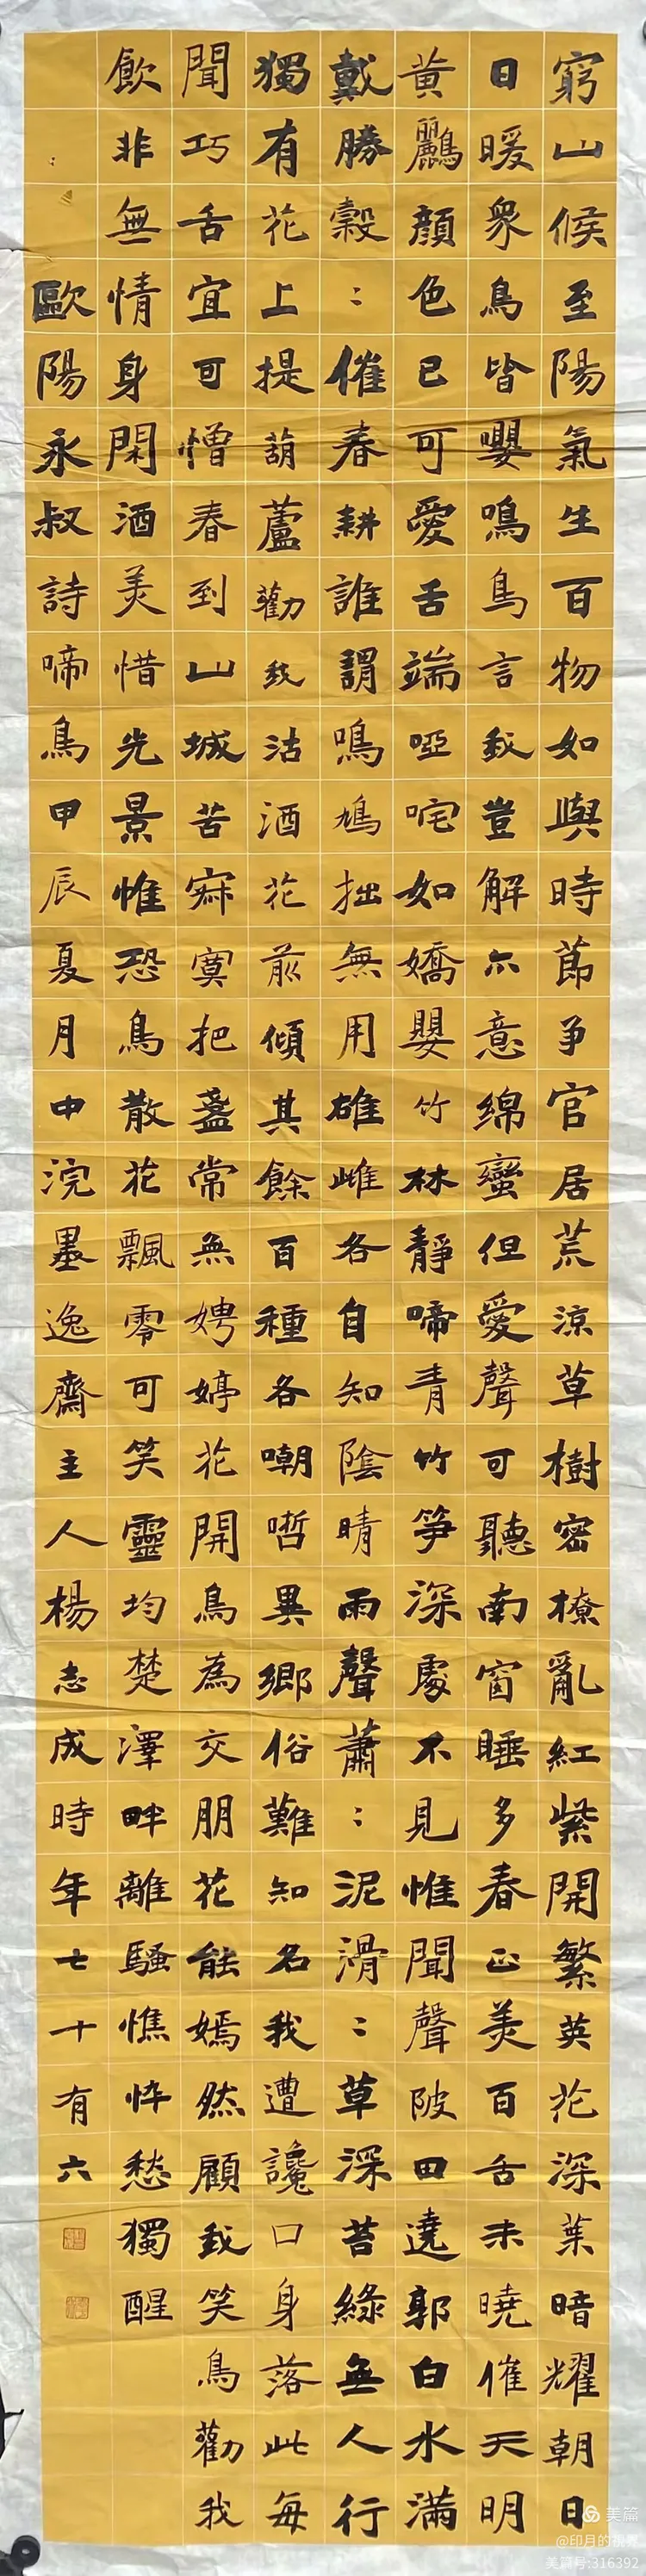 窮山候至陽氣生百物如與時節爭官居荒涼草樹密撩亂紅紫開繁英花深葉暗耀朝日
日暖眾鳥皆嚶鳴鳥言我豈解尒意綿蠻但愛聲可聽南窗睡多春正美百舌未曉催天明
黃鸝顏色已可愛舌端啞咤如嬌嬰竹林靜啼青竹筍深處不見惟聞聲陂田遶郭白水滿
戴勝穀：催春耕誰謂鳴鳩拙無用雄雌各自知陰晴雨聲蕭：泥滑：草深苔綠無人行
獨有花上提葫蘆勸我沽酒花前傾其餘百種各嘲哳異鄉俗難知名我遭讒口身落此每
聞巧舌宜可憎春到山城苦寂寞把盞常無娉婷花開鳥為交朋花能嫣然顧我笑鳥勸我
飲非無情身閑酒美惜光景惟恐鳥散花飄零可笑靈均楚澤畔離騷憔悴愁獨醒
歐陽永叔詩啼鳥甲辰夏月中浣墨逸齋主人楊志成時年七十有六
美篇
@印月的視界
美篇号:316392